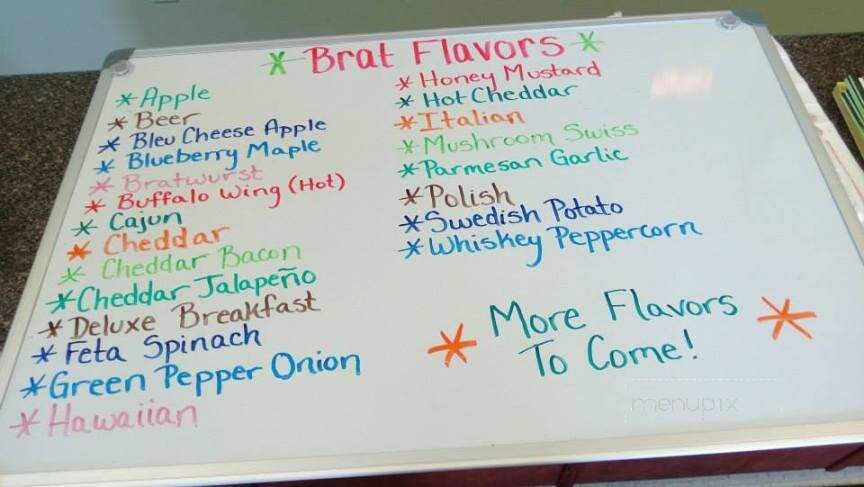 * Brat Flavors *
* Apple
* Beer
* Bleu Cheese Apple
* Blueberry Maple
* Bratwurst
* Buffalo Wing (Hot)
* Cajun
* Cheddar
* Cheddar Bacon
* Cheddar Jalapeño
* Deluxe Breakfast
* Feta Spinach
* Green Pepper Onion
* Hawaiian
* Honey Mustard
* Hot Cheddar
* Italian
* Mushroom Swiss
* Parmesan Garlic
* Polish
* Swedish Potato
* Whiskey Peppercorn
* More Flavors *
To Come!
menupix